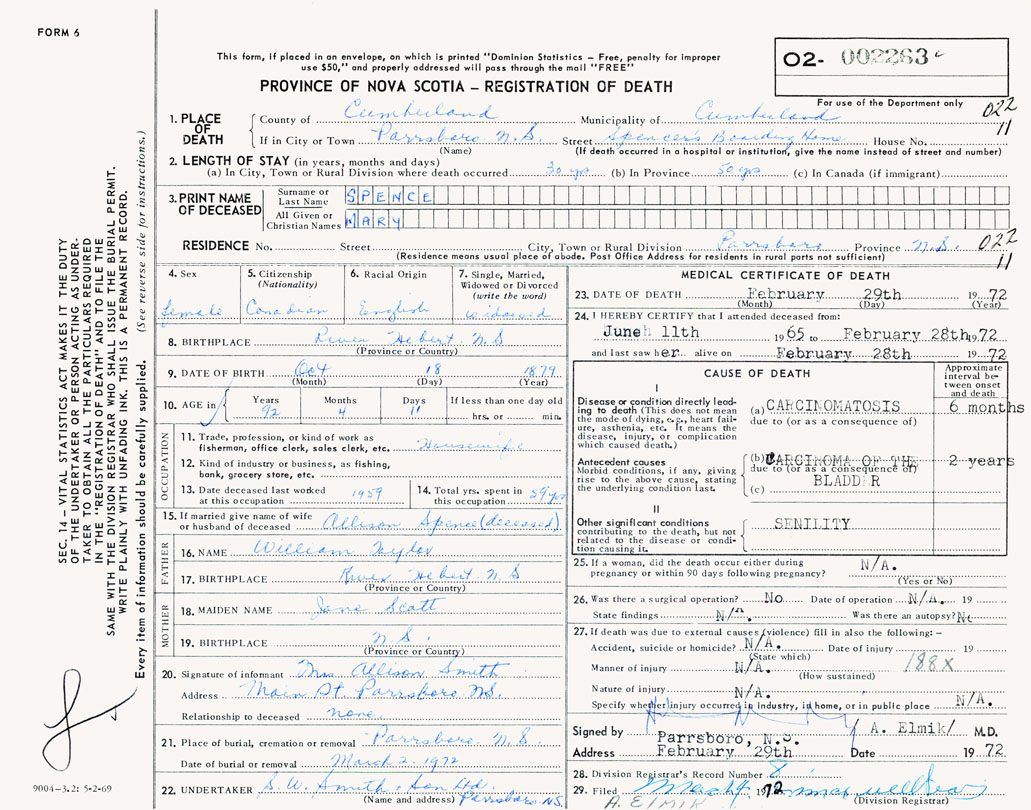 FORM 6
This form, if placed in an envelope, on which is printed "Dominion Statistics – Free, penalty for improper
use $50," and properly addressed will pass through the mail "FREE"
O2- 002263
For use of the Department only
PROVINCE OF NOVA SCOTIA – REGISTRATION OF DEATH
022
11
1. PLACE OF DEATH
County of Cumberland Municipality of Cumberland
If in City or Town Parrsboro N.S. Street Spencer's Boarding Home House No.
(Name) (If death occurred in a hospital or institution, give the name instead of street and number)
2. LENGTH OF STAY (in years, months and days)
(a) In City, Town or Rural Division where death occurred 30 yrs (b) In Province 50 yrs (c) In Canada (if immigrant)
3. PRINT NAME OF DECEASED
Surname or Last Name SPENCE
All Given or Christian Names MARY
RESIDENCE No. Street City, Town or Rural Division Parrsboro Province N.S. 022
(Residence means usual place of abode. Post Office Address for residents in rural parts not sufficient) 11
4. Sex
female
5. Citizenship
(Nationality)
Canadian
6. Racial Origin
English
7. Single, Married,
Widowed or Divorced
(write the word)
widowed
8. BIRTHPLACE River Hebert N S
(Province or Country)
9. DATE OF BIRTH Oct 18 1879
(Month) (Day) (Year)
10. AGE in
Years Months Days If less than one day old
92 4 11 hrs. or min.
OCCUPATION
11. Trade, profession, or kind of work as
fisherman, office clerk, sales clerk, etc. Housewife
12. Kind of industry or business, as fishing,
bank, grocery store, etc.
13. Date deceased last worked
at this occupation 1959
14. Total yrs. spent in
this occupation 59 yrs
15. If married give name of wife
or husband of deceased Allison Spence (deceased)
FATHER
16. NAME William Taylor
17. BIRTHPLACE River Hebert N S
(Province or Country)
MOTHER
18. MAIDEN NAME Jane Scott
19. BIRTHPLACE N S.
(Province or Country)
20. Signature of informant Mrs Allison Smith
Address Main St. Parrsboro NS.
Relationship to deceased none.
21. Place of burial, cremation or removal Parrsboro N.S.
Date of burial or removal March 2, 1972
22. UNDERTAKER S.W. Smith & Son Ltd.
(Name and address) Parrsboro NS.
MEDICAL CERTIFICATE OF DEATH
23. DATE OF DEATH February 29th 1972
(Month) (Day) (Year)
24. I HEREBY CERTIFY that I attended deceased from:
Juneh 11th 1965 to February 28th 1972
and last saw her alive on February 28th 1972
CAUSE OF DEATH
Approximate
interval be-
tween onset
and death
I
Disease or condition directly lead-
ing to death (This does not mean
the mode of dying, e.g., heart fail-
ure, asthenia, etc. It means the
disease, injury, or complication
which caused death.)
(a) CARCINOMATOSIS 6 months
due to (or as a consequence of)
Antecedent causes
Morbid conditions, if any, giving
rise to the above cause, stating
the underlying condition last.
(b) CARCINOMA OF THE 2 years
due to (or as a consequence of)
BLADDER
(c)
II
Other significant conditions
contributing to the death, but not
related to the disease or condi-
tion causing it.
SENILITY
25. If a woman, did the death occur either during
pregnancy or within 90 days following pregnancy? N/A.
(Yes or No)
26. Was there a surgical operation? No Date of operation N/A. 19
State findings N/A. Was there an autopsy? No
27. If death was due to external causes (violence) fill in also the following: –
Accident, suicide or homicide? N/A. Date of injury 19
(State which)
188X
Manner of injury N/A.
(How sustained)
Nature of injury N/A.
Specify whether injury occurred in industry, in home, or in public place N/A.
Signed by / A. Elmik/ M.D.
Parrsboro, N.S.
Address February 29th Date 1972
28. Division Registrar's Record Number 8
29. Filed March 1 1972
(Division Registrar)
A. ELMIK
SEC. 14 – VITAL STATISTICS ACT MAKES IT THE DUTY
OF THE UNDERTAKER OR PERSON ACTING AS UNDER-
TAKER TO OBTAIN ALL THE PARTICULARS REQUIRED
IN THE "REGISTRATION OF DEATH" AND TO FILE THE
SAME WITH THE DIVISION REGISTRAR WHO SHALL ISSUE THE BURIAL PERMIT.
WRITE PLAINLY WITH UNFADING INK. THIS IS A PERMANENT RECORD.
Every item of information should be carefully supplied. (See reverse side for instructions.)
9004-3.2: 5-2-69